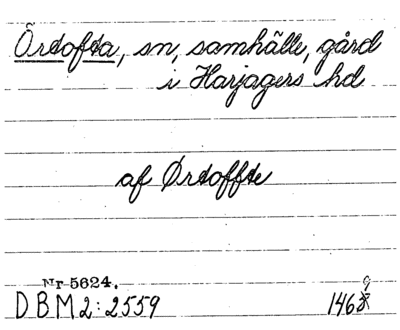 Örtofta, sn, samhälle, gård
i Harjagers hd
af Ørtoffte
Nr 5624.
DBM2:2559 1469